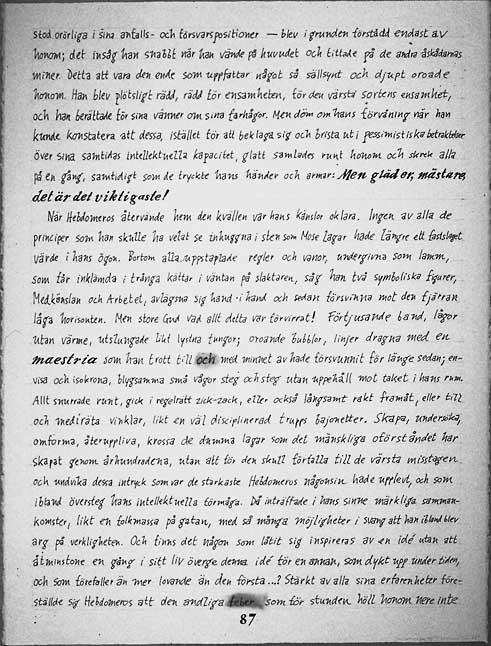 stod orörliga i sina anfalls- och försvarspositioner — blev i grunden förstådd endast av
honom; det insåg han snabbt när han vände på huvudet och tittade på de andra åskådarnas
miner. Detta att vara den ende som uppfattar något så sällsynt och djupt oroade
honom. Han blev plötsligt rädd, rädd för ensamheten, för den värsta sortens ensamhet,
och han berättade för sina vänner om sina farhågor. Men döm om hans förvåning när han
kunde konstatera att dessa, istället för att beklaga sig och brista ut i pessimistiska betraktelser
över sina samtidas intellektuella kapacitet, glatt samlades runt honom och skrek alla
på en gång, samtidigt som de tryckte hans händer och armar: Men gläd er, mästare,
det är det viktigaste!
När Hebdomeros återvände hem den kvällen var hans känslor oklara. Ingen av alla de
principer som han skulle ha velat se inhuggna i sten som Mose lagar hade längre ett fastslaget
värde i hans ögon. Bortom alla uppstaplade regler och vanor, undergivna som lamm,
som får inklämda i trånga kättar i väntan på slaktaren, såg han två symboliska figurer,
Medkänslan och Arbetet, avlägsna sig hand i hand och sedan försvinna mot den fjärran
låga horisonten. Men store Gud vad allt detta var förvirrat! Förtjusande band, lågor
utan värme, utslungade likt lystna tungor; oroande bubblor, linjer dragna med en
maestria som han trott till och med minnet av hade försvunnit för länge sedan; en-
visa och isokrona, blygsamma små vågor steg och steg utan uppehåll mot taket i hans rum.
Allt snurrade runt, gick i regelrätt zick-zack, eller också långsamt rakt framåt, eller till
och med i räta vinklar, likt en väl disciplinerad trupps bajonetter. Skapa, undersöka,
omforma, återuppliva, krossa de dumma lagar som det mänskliga oförståndet har
skapat genom århundradena, utan att för den skull förfalla till de värsta misstagen
och undvika dessa intryck som var de starkaste Hebdomeros någonsin hade upplevt, och som
ibland översteg hans intellektuella förmåga. Då inträffade i hans sinne märkliga samman-
komster, likt en folkmassa på gatan, med så många möjligheter i svang att han ibland blev
arg på verkligheten. Och finns det någon som låtit sig inspireras av en idé utan att
åtminstone en gång i sitt liv överge denna idé för en annan, som dykt upp under tiden,
och som förefaller än mer lovande än den första...? Stärkt av alla sina erfarenheter före-
ställde sig Hebdomeros att den andliga feber som för stunden höll honom nere inte
87